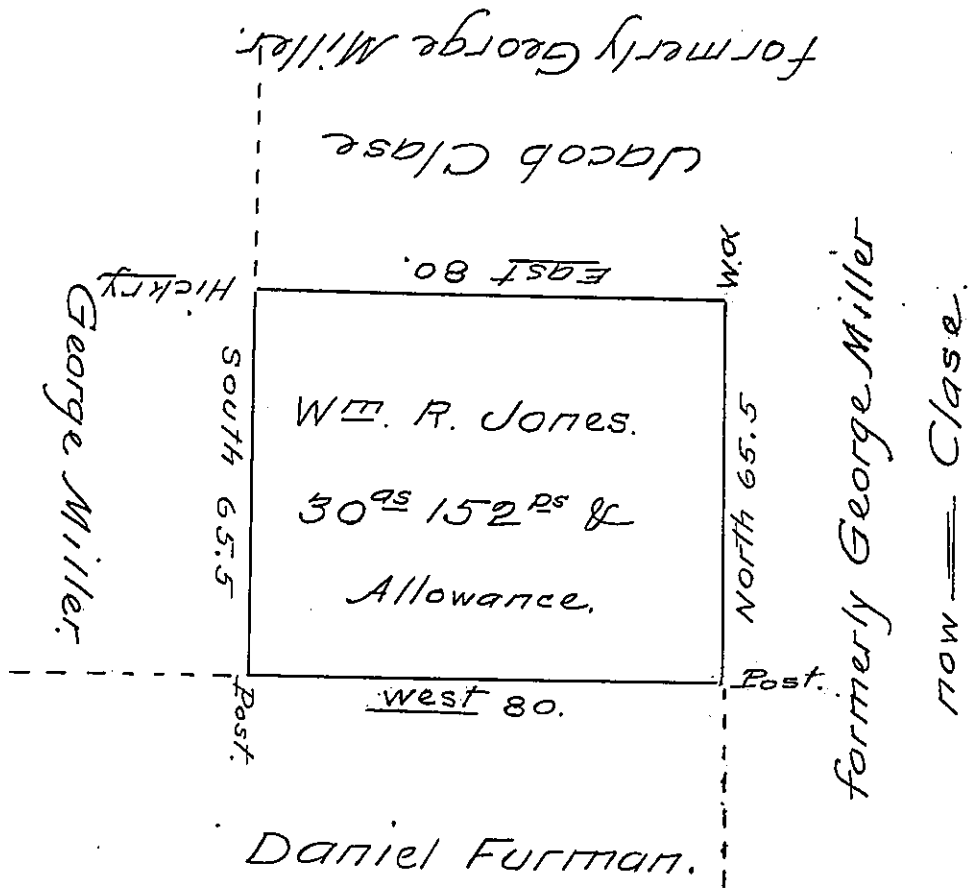 formerly George Miller.
Jacob Clase
East 80.
Hickry
W.O.
George Miller.
South 65.5
Wm. R. Jones.
30as 152ps &
Allowance.
North 65.5
formerly George Miller
now — Clase.
Post.
west 80.
Post.
Daniel Furman.